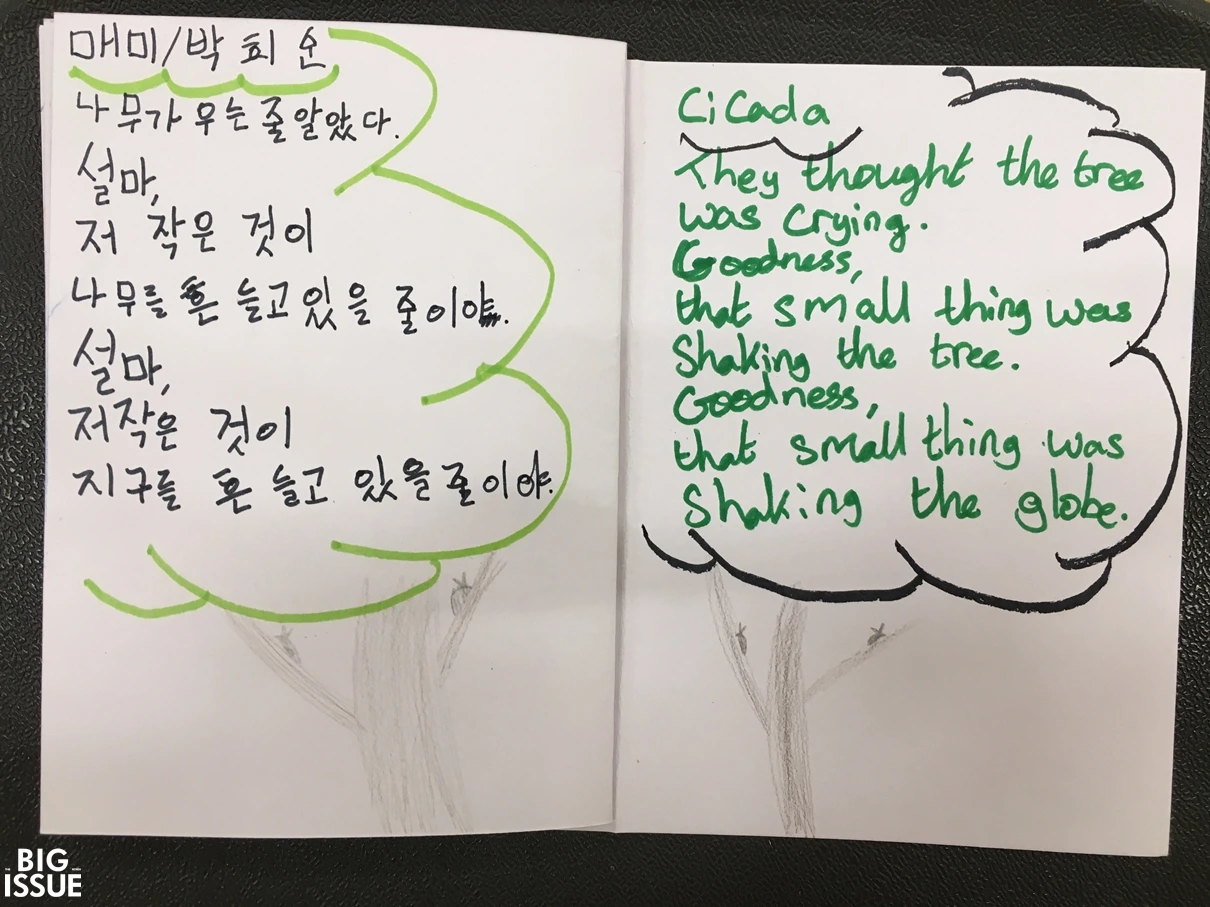 매미/박희순
나무가 우는 줄 알았다.
설마,
저 작은 것이
나무를 흔들고 있을 줄이야.
설마,
저 작은 것이
지구를 흔들고 있을 줄이야.
Cicada
They thought the tree
was crying.
Goodness,
that small thing was
shaking the tree.
Goodness,
that small thing was
shaking the globe.
BIG
ISSUE